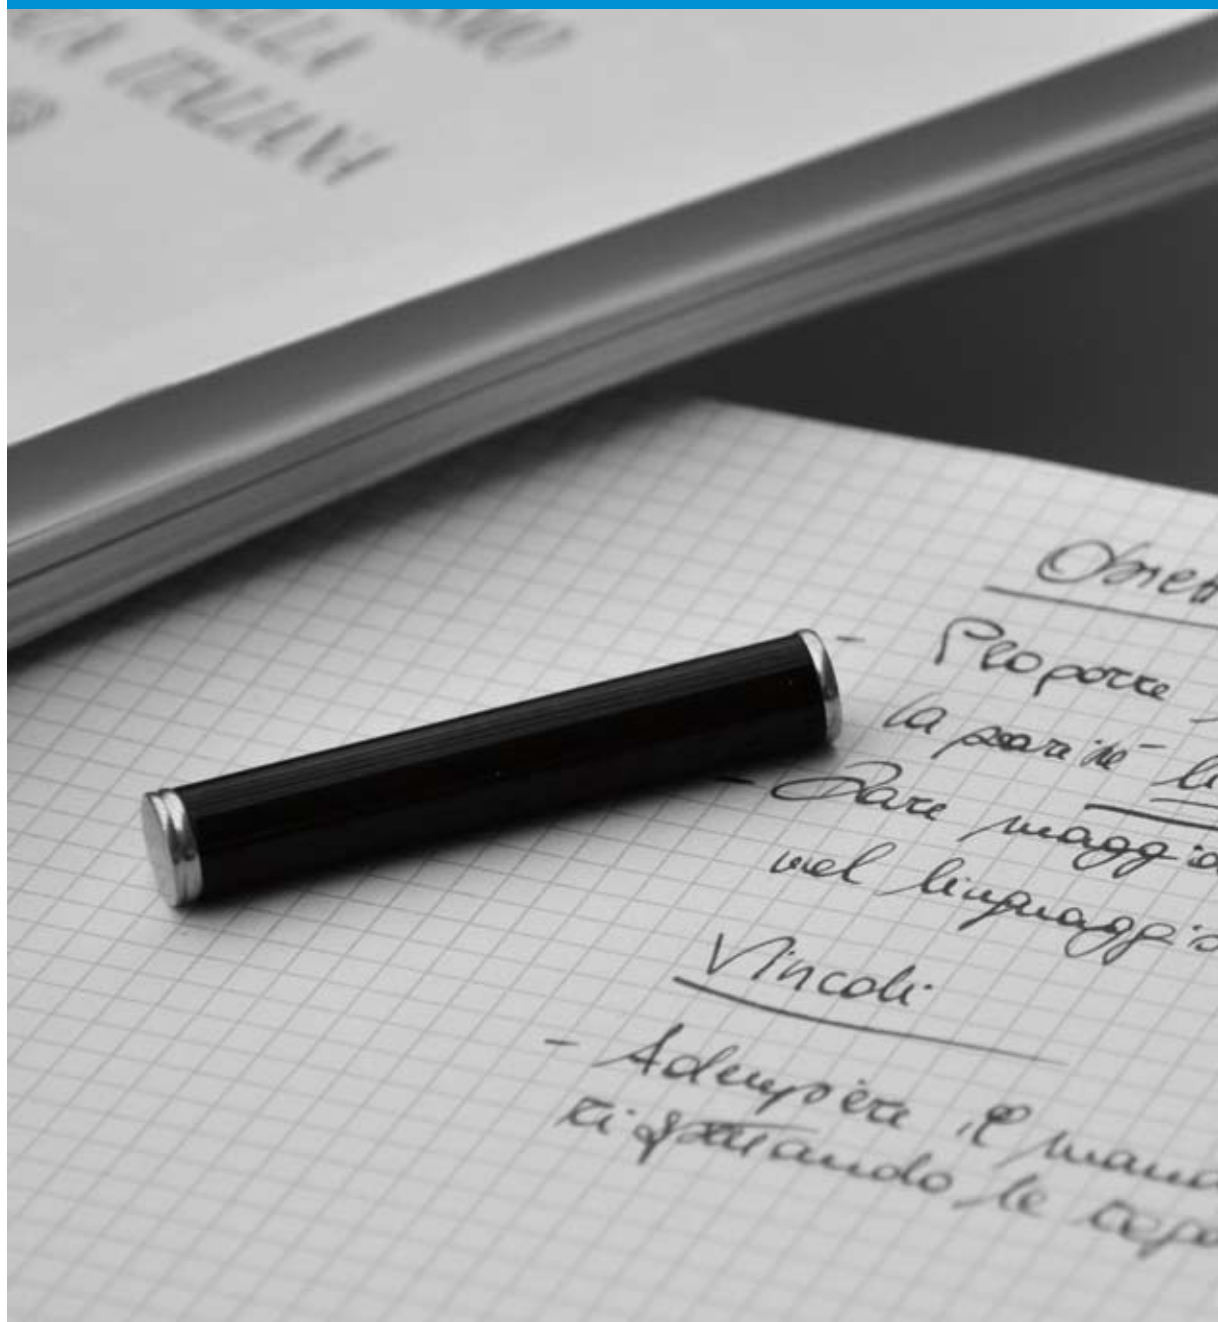 ELLA
ITALIANA
Obiett
- Proporre
la parità li
- Dare maggio
nel linguaggio
Vincoli
- Adempiere il mand
rispettando le